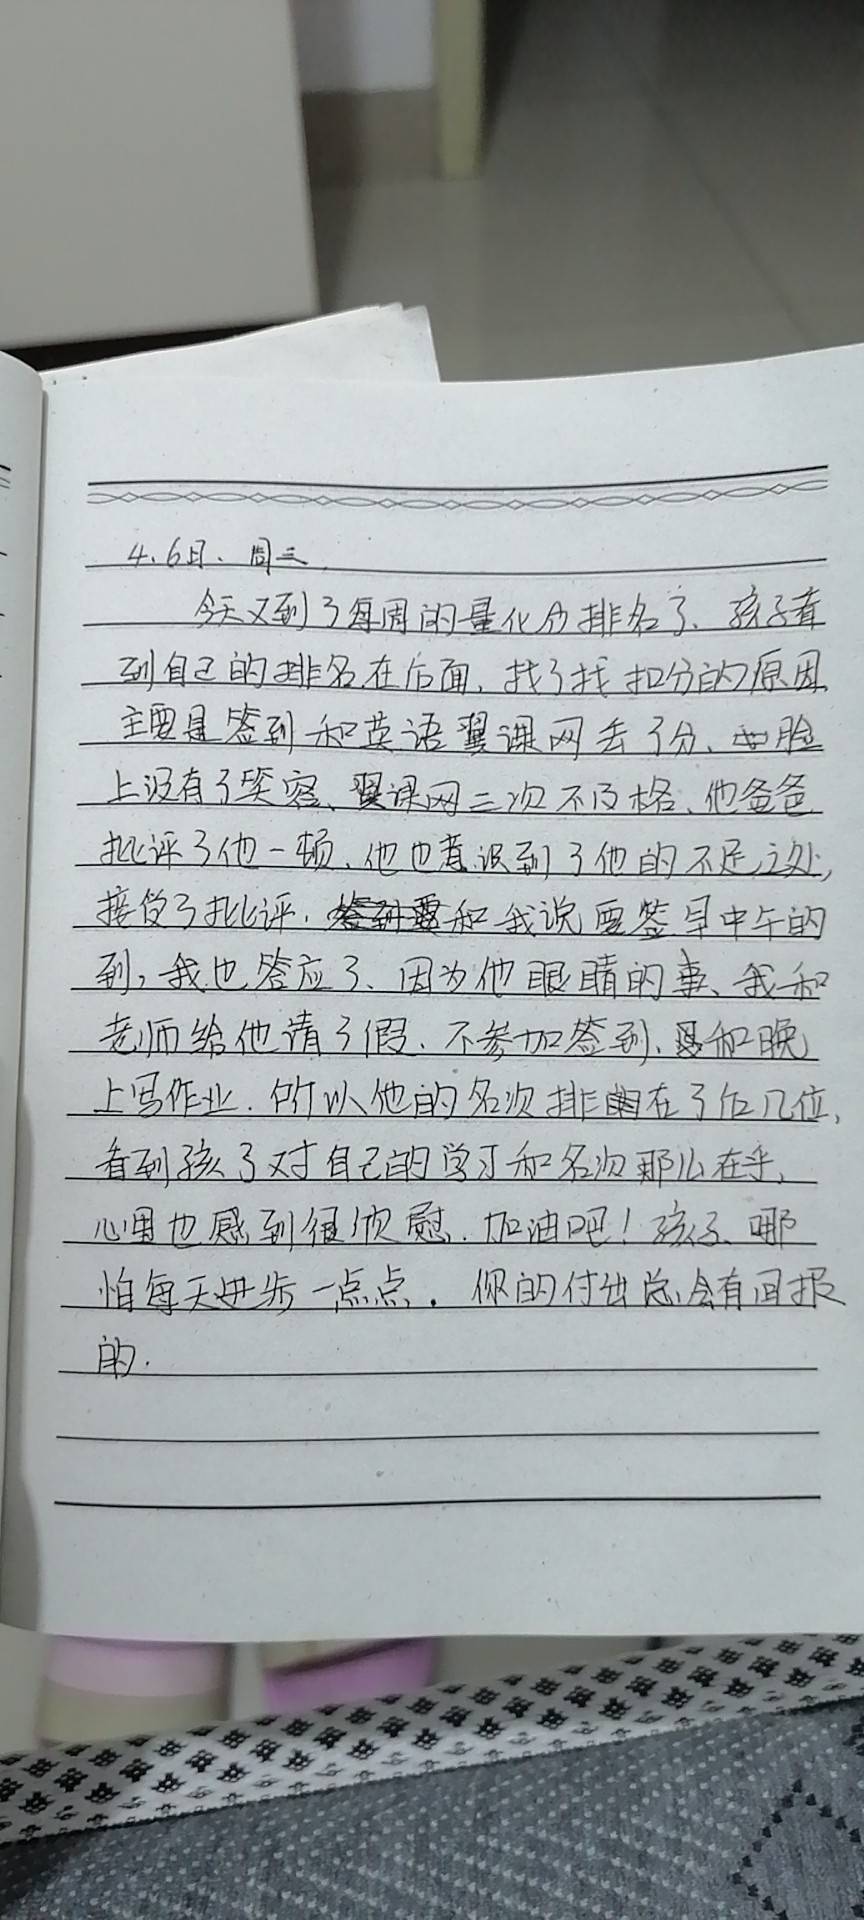 4.6日、周三.
今天又到了每周的量化分排名了、孩子看
到自己的排名在后面、找了找扣分的原因,
主要是签到和英语翼课网丢了分、脸
上没有了笑容、翼课网三次不及格、他爸爸
批评了他一顿、他也意识到了他的不足之处,
接受了批评.和我说要签早中午的
到,我也答应了、因为他眼睛的事、我和
老师给他请了假、不参加签到、和晚
上写作业.所以他的名次排在了后几位,
看到孩子对自己的学习和名次那么在乎,
心里也感到很欣慰.加油吧!孩子、哪
怕每天进步一点点.你的付出总会有回报
的.